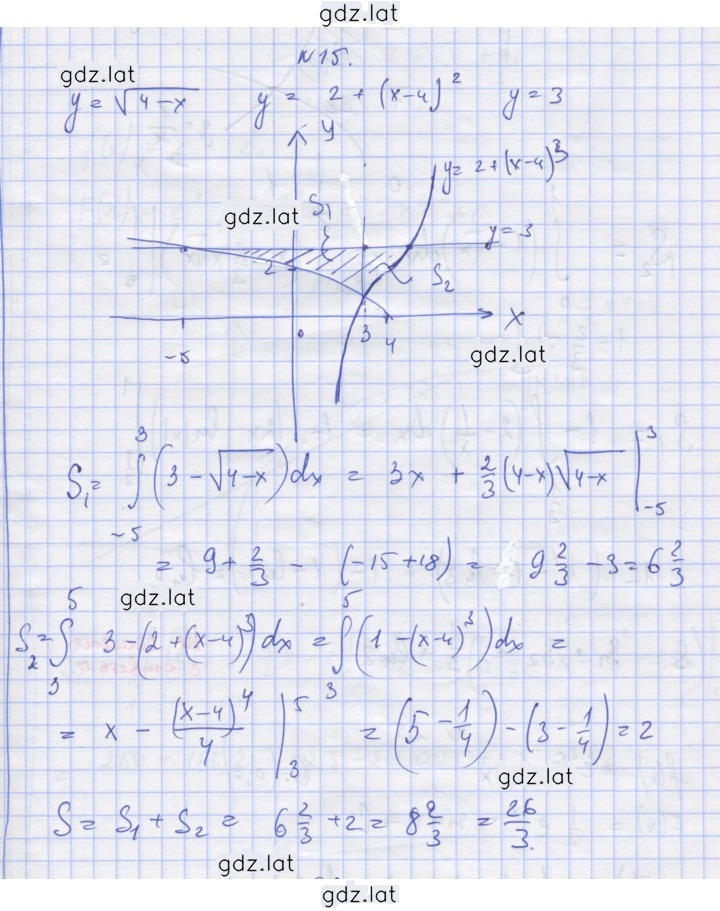 gdz.lat
N15.
gdz.lat
y = √(4-x) y = 2 + (x-4)² y = 3
y
y = 2 + (x-4)³
gdz.lat
S₁
y = 3
2
S₂
x
-5 0 3 4
gdz.lat
S₁ = ∫₋₅³ (3 - √(4-x)) dx = 3x + 2/3 (4-x)√(4-x) |₋₅³
= 9 + 2/3 - (-15+18) = 9 2/3 - 3 = 6 2/3
gdz.lat
S₂ = ∫₃⁵ 3 - (2 + (x-4)³) dx = ∫₃⁵ (1 - (x-4)³) dx =
= x - (x-4)⁴/4 |₃⁵ = (5 - 1/4) - (3 - 1/4) = 2
gdz.lat
S = S₁ + S₂ = 6 2/3 + 2 = 8 2/3 = 26/3.
gdz.lat
gdz.lat